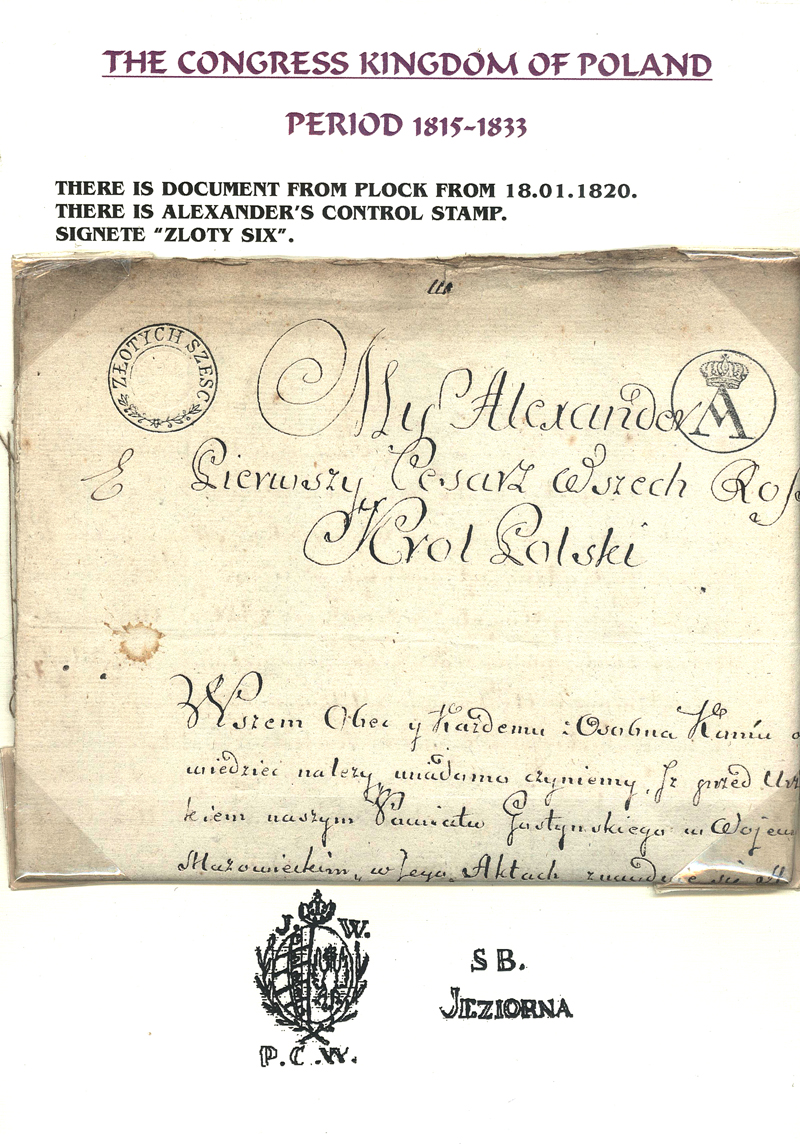 THE CONGRESS KINGDOM OF POLAND
PERIOD 1815-1833
THERE IS DOCUMENT FROM PLOCK FROM 18.01.1820.
THERE IS ALEXANDER'S CONTROL STAMP.
SIGNETE "ZLOTY SIX".
ZŁOTYCH SZESC
My Alexander
A
E Pierwszy Cesarz Wszech Ros
Krol Polski
Wszem Obec y Każdemu z Osobna Komu
wiedziec nalezy, wiadomo czyniemy, Jz przed
kiem naszym Powiatu Gostynskiego w Wojew
Mazowieckim, w Jego Aktach znayduie się
J. W.
P. C. W.
S B.
JEZIORNA